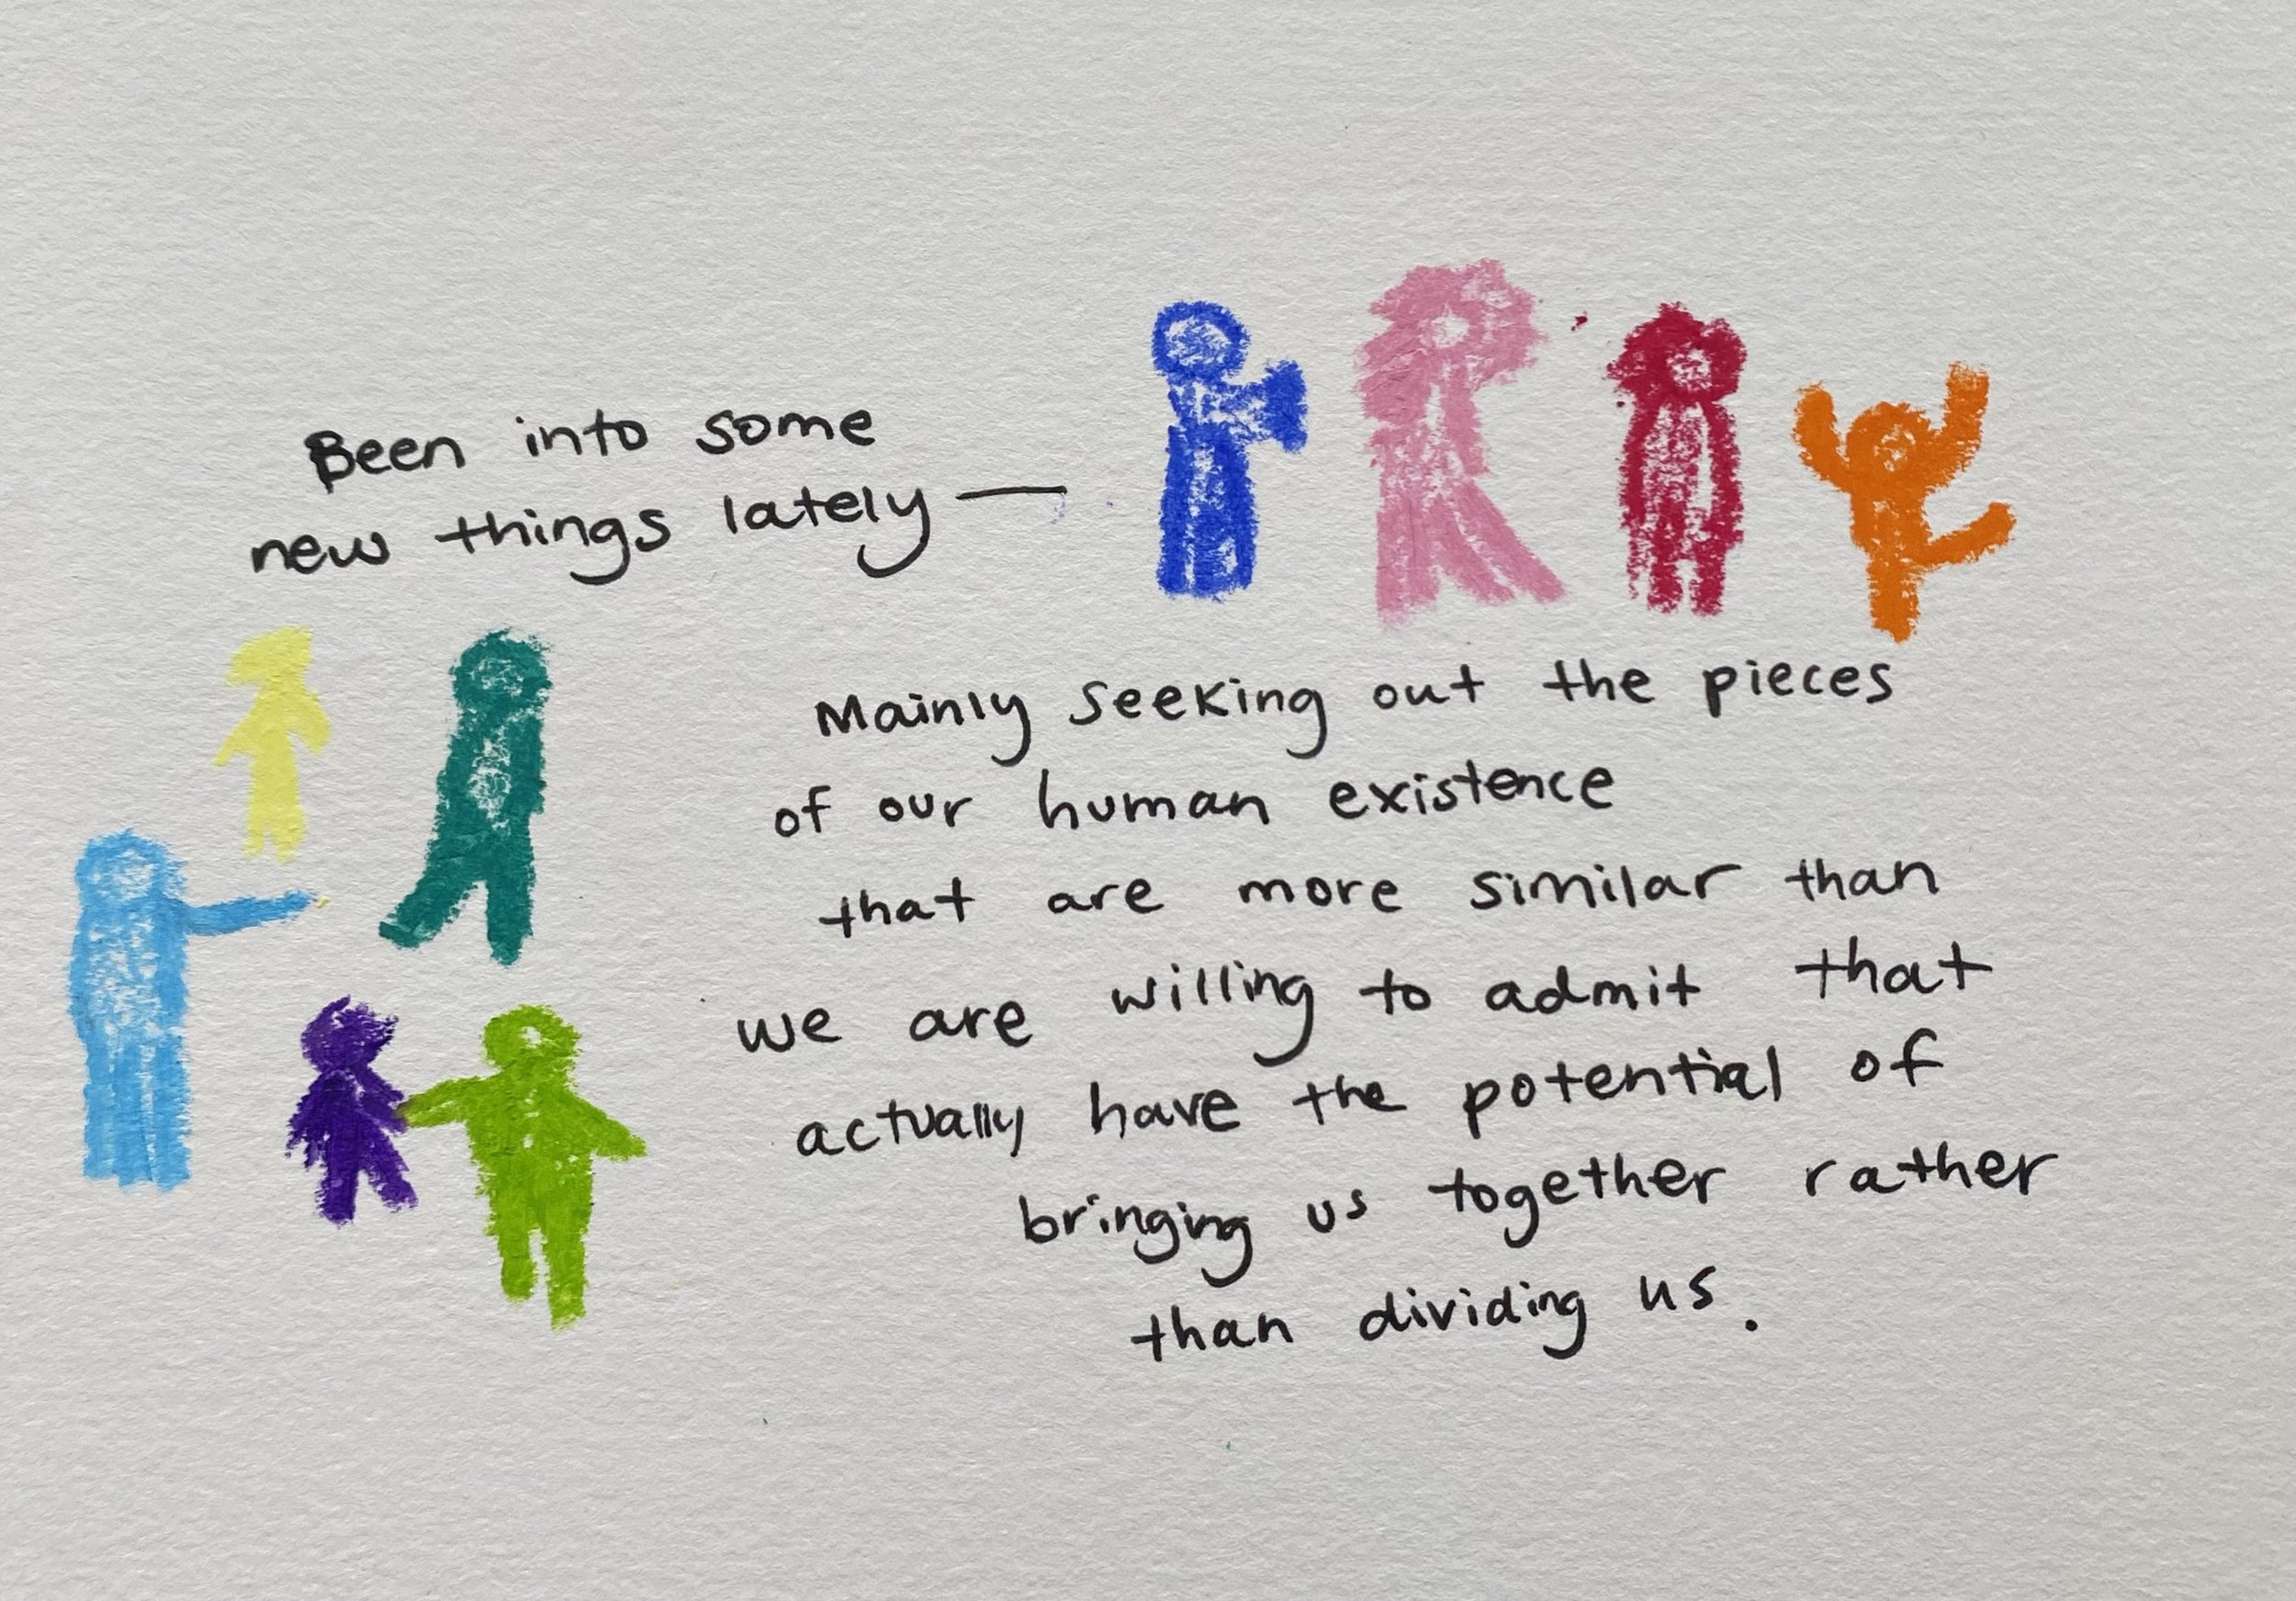 Been into some
new things lately —
Mainly seeking out the pieces
of our human existence
that are more similar than
we are willing to admit that
actually have the potential of
bringing us together rather
than dividing us.